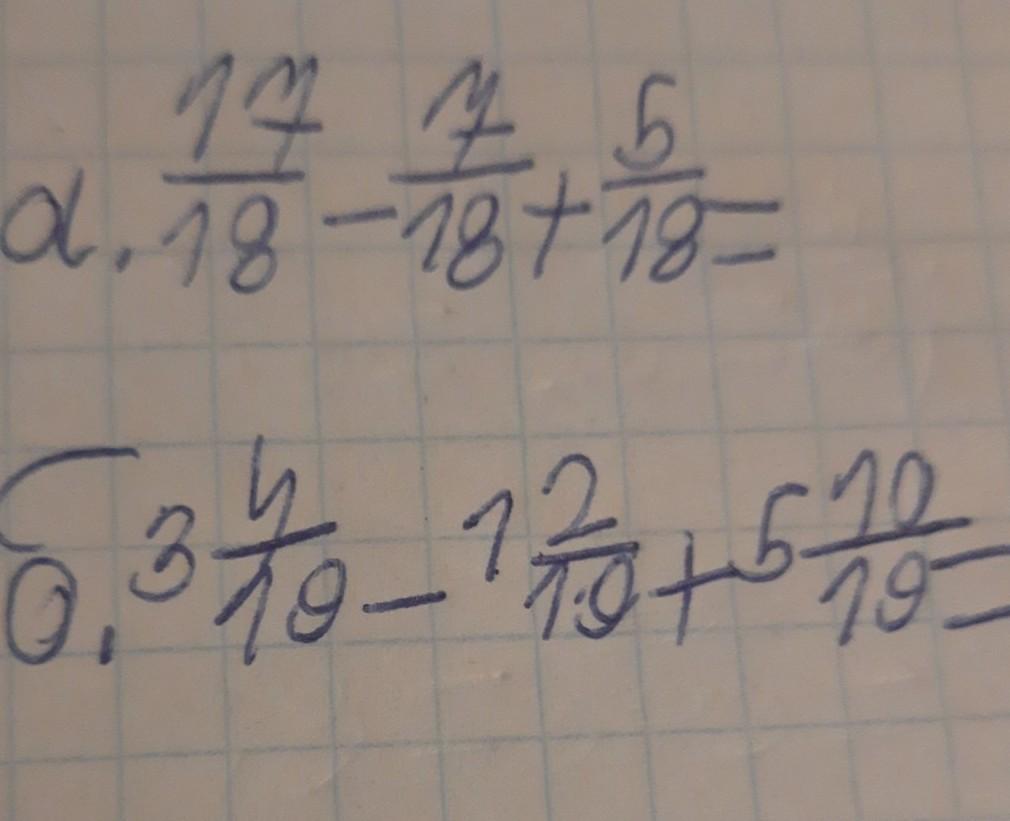 а. 17/18 - 7/18 + 5/18 =
б. 3 4/19 - 1 2/19 + 5 10/19 =